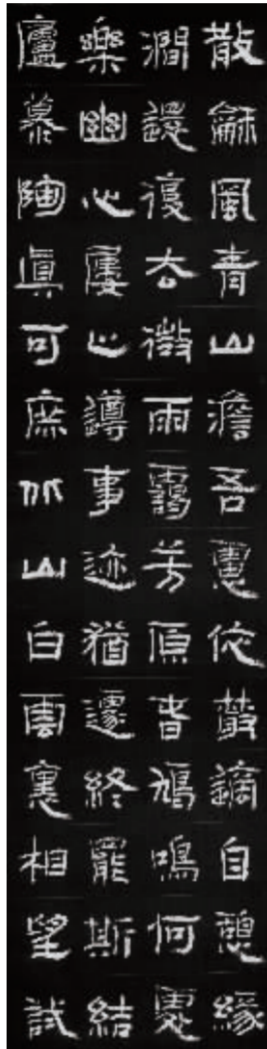 散龢風青山澹吾慮依叢適自憩緣
澗還復去微雨靄芳原春鳩鳴何處
樂幽心屢止遵事迹猶遽終罷斯結
廬慕陶真可庶北山白雲裏相望試